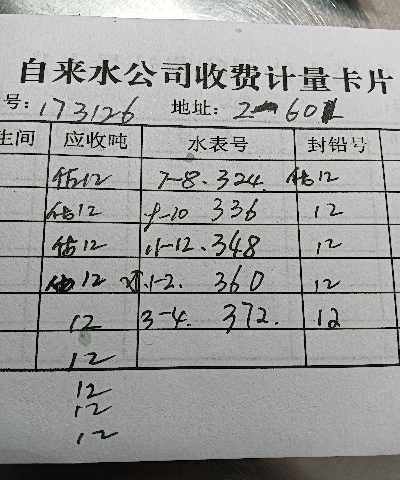 自来水公司收费计量卡片
号: 173126 地址: 2-601
生间 应收吨 水表号 封铅号
估12 7-8. 324. 估12
估12 9-10 336 12
估12 11-12. 348 12
估12 1-2. 360 12
12 3-4. 372. 12
12
12
12
12